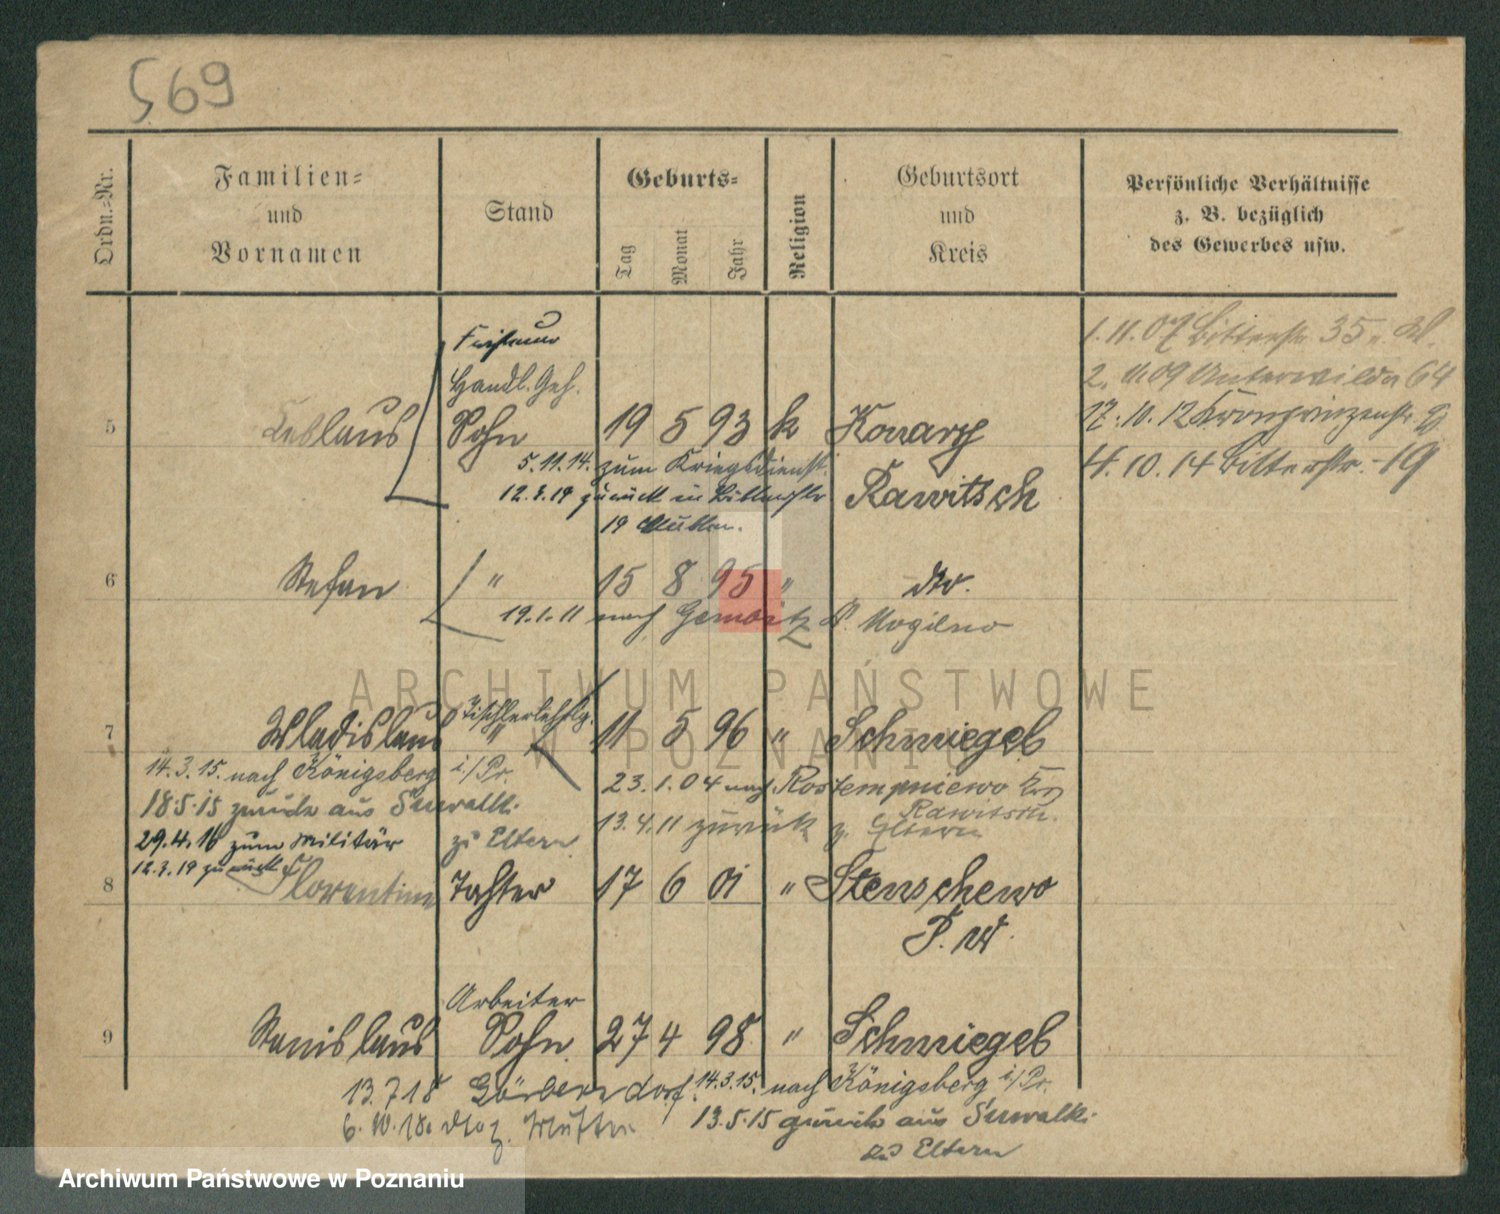 569
Ordn.-Nr.
Familien-
und
Vornamen
Stand
Geburts-
Tag
Monat
Jahr
Religion
Geburtsort
und
Kreis
Persönliche Verhältnisse
z. B. bezüglich
des Gewerbes usw.
1.11.07 Bitterstr. 35
2. 11.09 Unterwilda 64
17.10.12 Kronprinzenstr.
4.10.14 Bitterstr. 19
Friseur
Handl. Geh.
5 Ceslaus Sohn 19 5 93 k Konary
Rawitsch
5.11.14. zum Kriegsdienst.
12.3.19 zurück in Bitterstr
19 Mutter.
6 Stefan " 15 8 95 " dto.
19.1.11 nach Gembitz K. Mogilno
Tischlerlehrlg.
7 Wladislaus " 11 5 96 " Schmiegel
14.3.15. nach Königsberg i/Pr.
18.5.15 zurück aus Suwalki
zu Eltern
29.4.16 zum Militär
12.3.19 zurück
23.1.04 nach Rostempniewo Krs
Rawitsch.
13.4.11 zurück z. Eltern
8 Florentine Tochter 17 6 01 " Stenschewo
P. W.
Arbeiter
9 Stanislaus Sohn 27 4 98 " Schmiegel
13.7.18 Görbersdorf.
6.10.18 z. Mutter
14.3.15. nach Königsberg i/Pr.
13.5.15 zurück aus Suwalki
zu Eltern
ARCHIWUM PAŃSTWOWE
W POZNANIU
Archiwum Państwowe w Poznaniu